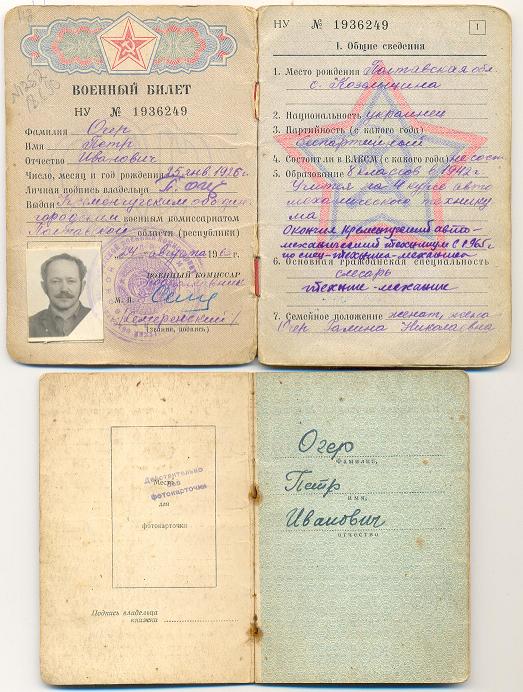 ВОЕННЫЙ БИЛЕТ
НУ № 1936249
Фамилия Огир
Имя Петр
Отчество Иванович
Число, месяц и год рождения 25 янв. 1926 г.
Личная подпись владельца П. Огир
Выдан Кременчугским объедин.
городским военным комиссариатом
Полтавской области (республики)
августа 196 г.
ВОЕННЫЙ КОМИССАР
подполковник
М. П.
(звание, подпись)
НУ № 1936249
1
I. Общие сведения
1. Место рождения Полтавская обл.
с. Козельщина
2. Национальность украинец
3. Партийность (с какого года)
беспартийный
4. Состоит ли в ВЛКСМ (с какого года) не сост.
5. Образование 8 классов в 1942 г.
Учится на 4 курсе авто
механического технику
ма
Окончил Кременчугский авто-
механический техникум в 1965 г
по спец. техника-механика
6. Основная гражданская специальность
слесарь
техник-механик
7. Семейное положение женат, жена
Огир Галина Николаевна
Действительно
без
фотокарточки
Место
для
фотокарточки
Подпись владельца
книжки
Огер
фамилия,
Петр
имя,
Иванович
отчество